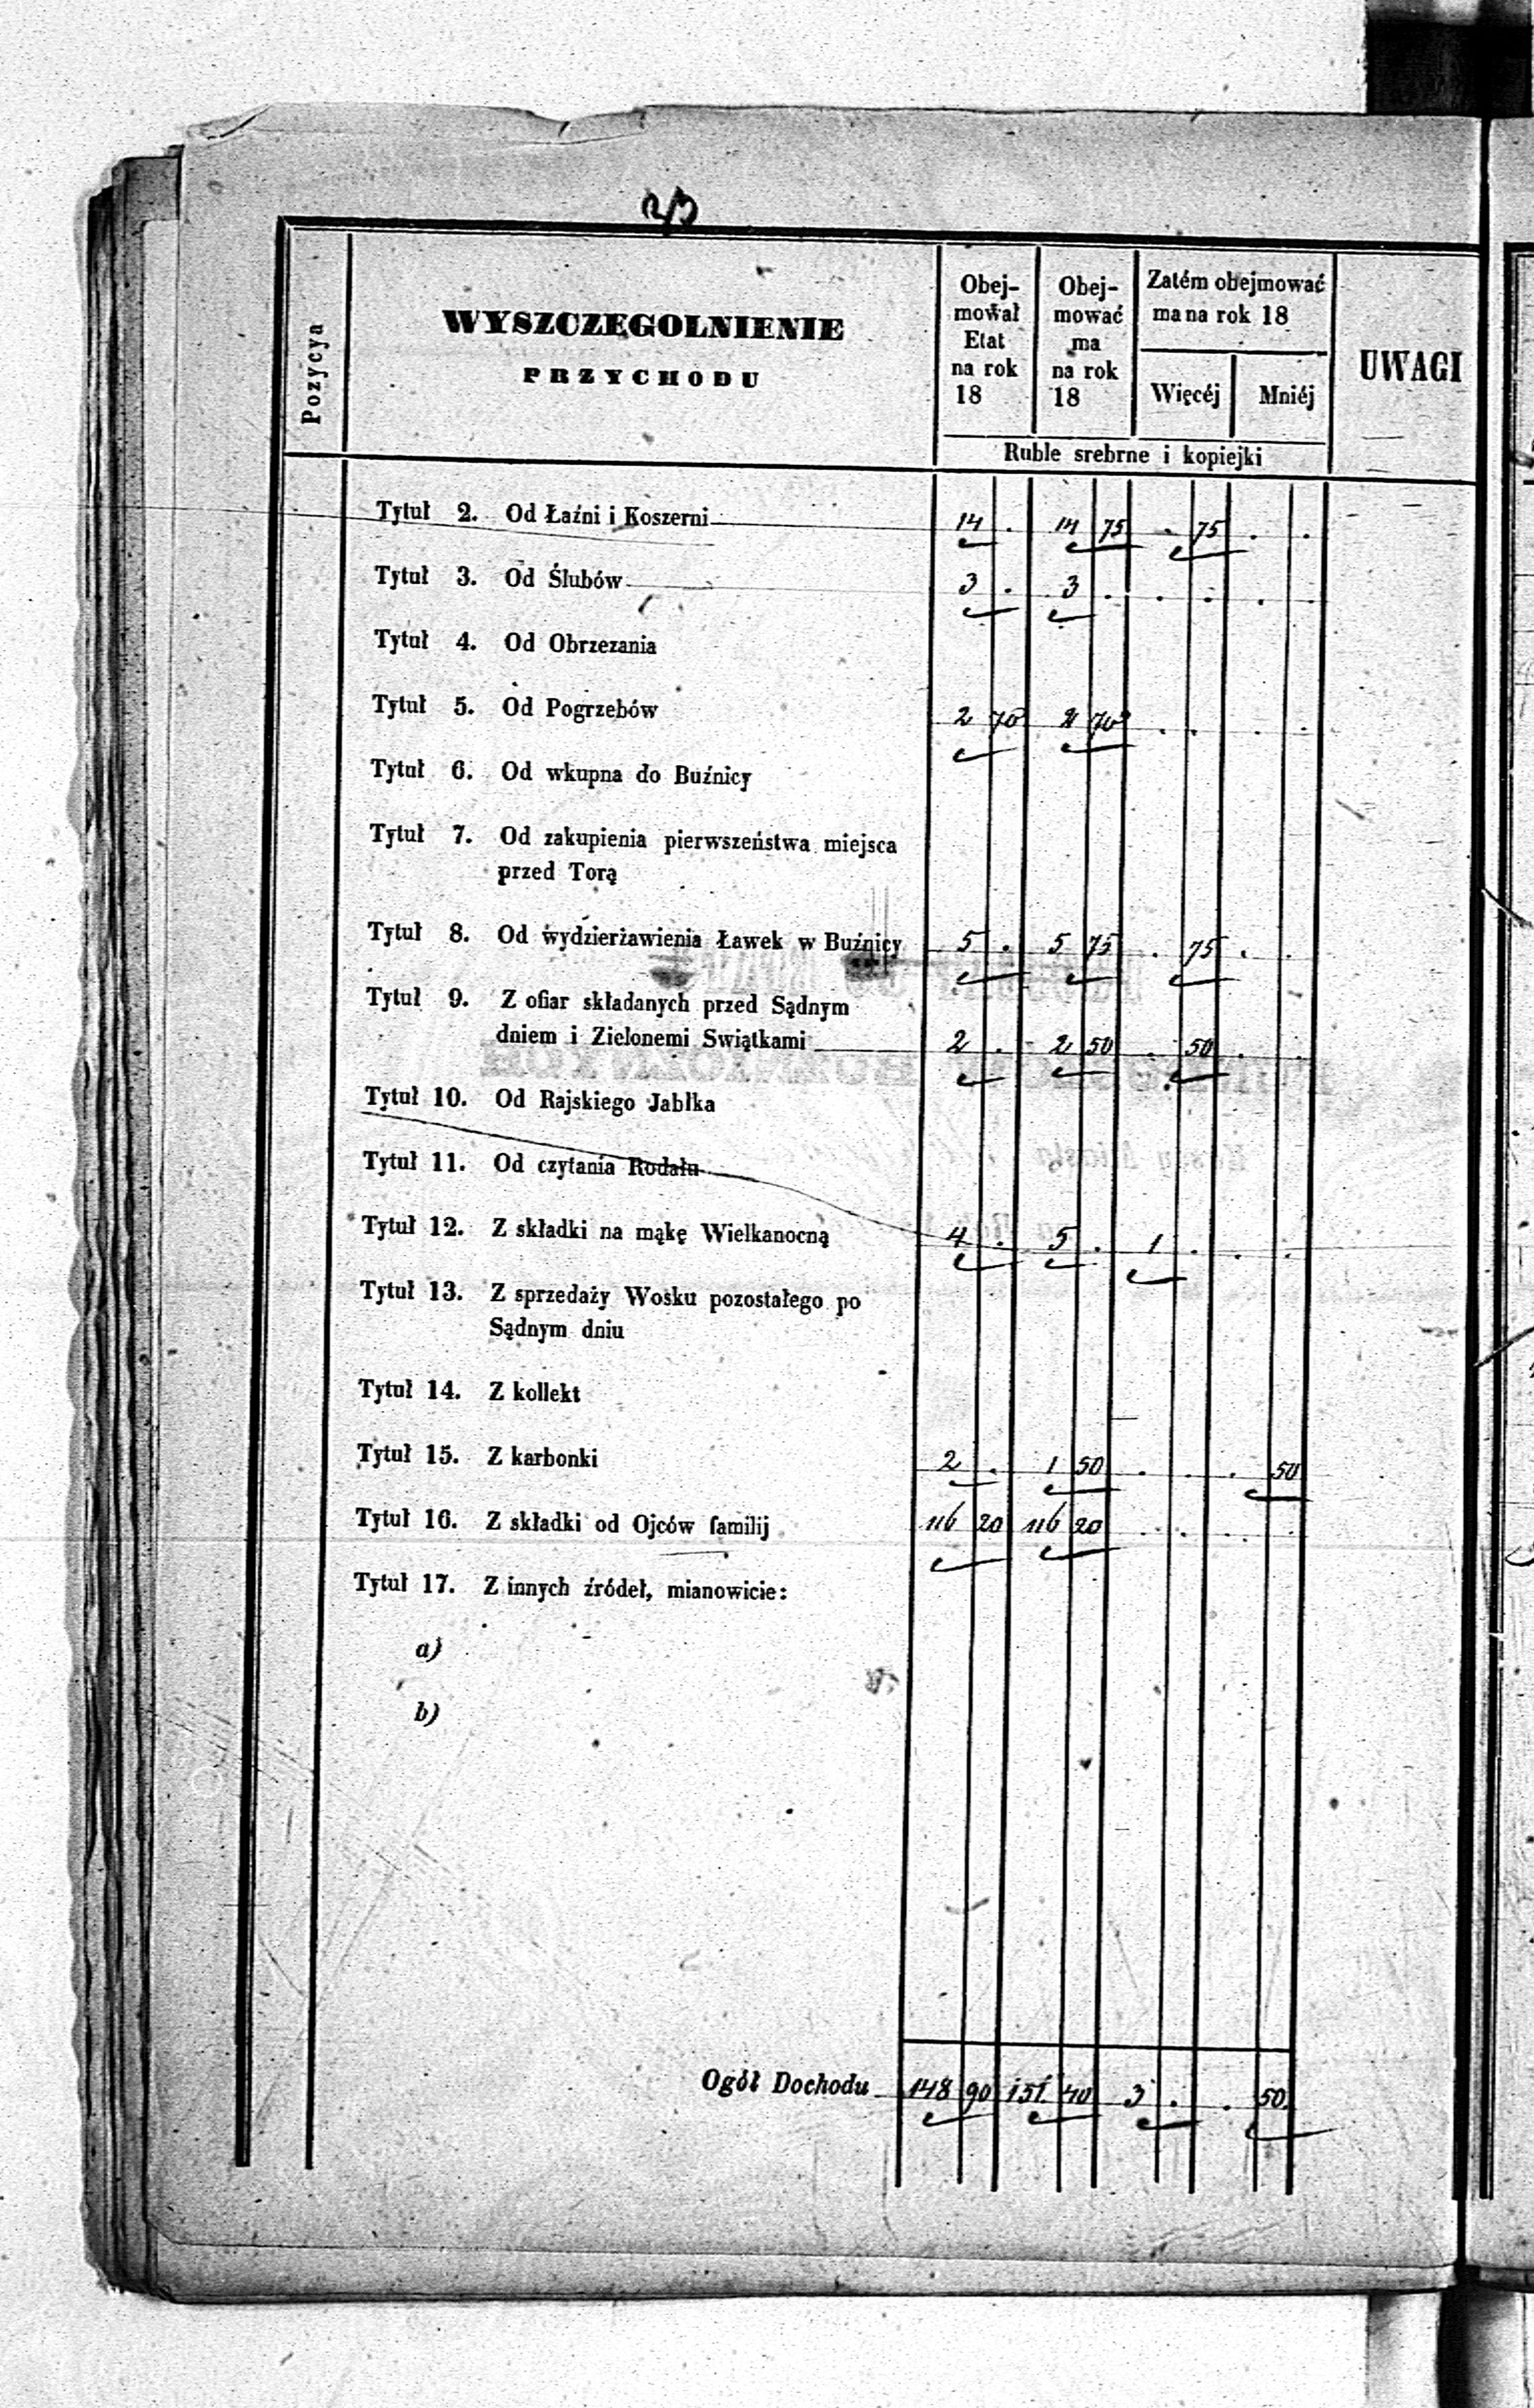 Pozycya
WYSZCZEGOLNIENIE
PRZYCHODU
Obej-
mował
Etat
na rok
18
Obej-
mować
ma
na rok
18
Zatém obejmować
ma na rok 18
Więcéj Mniéj
Ruble srebrne i kopiejki
UWAGI
Tytuł 2. Od Łaźni i Koszerni 14 . 14 75 . 75 . .
Tytuł 3. Od Ślubów 3 . 3 . . . . .
Tytuł 4. Od Obrzezania
Tytuł 5. Od Pogrzebów 2 70 2 70 . . . .
Tytuł 6. Od wkupna do Buźnicy
Tytuł 7. Od zakupienia pierwszeństwa miejsca
przed Torą
Tytuł 8. Od wydzierżawienia Ławek w Buźnicy 5 . 5 75 . 75 . .
Tytuł 9. Z ofiar składanych przed Sądnym
dniem i Zielonemi Swiątkami 2 . 2 50 . 50 . .
Tytuł 10. Od Rajskiego Jabłka
Tytuł 11. Od czytania Rodału
Tytuł 12. Z składki na mąkę Wielkanocną 4 . 5 . 1 . . .
Tytuł 13. Z sprzedaży Wosku pozostałego po
Sądnym dniu
Tytuł 14. Z kollekt
Tytuł 15. Z karbonki 2 . 1 50 . . . 50
Tytuł 16. Z składki od Ojców familij 116 20 116 20 . . . .
Tytuł 17. Z innych źródeł, mianowicie:
a)
b)
Ogół Dochodu 148 90 151 40 3 . . 50